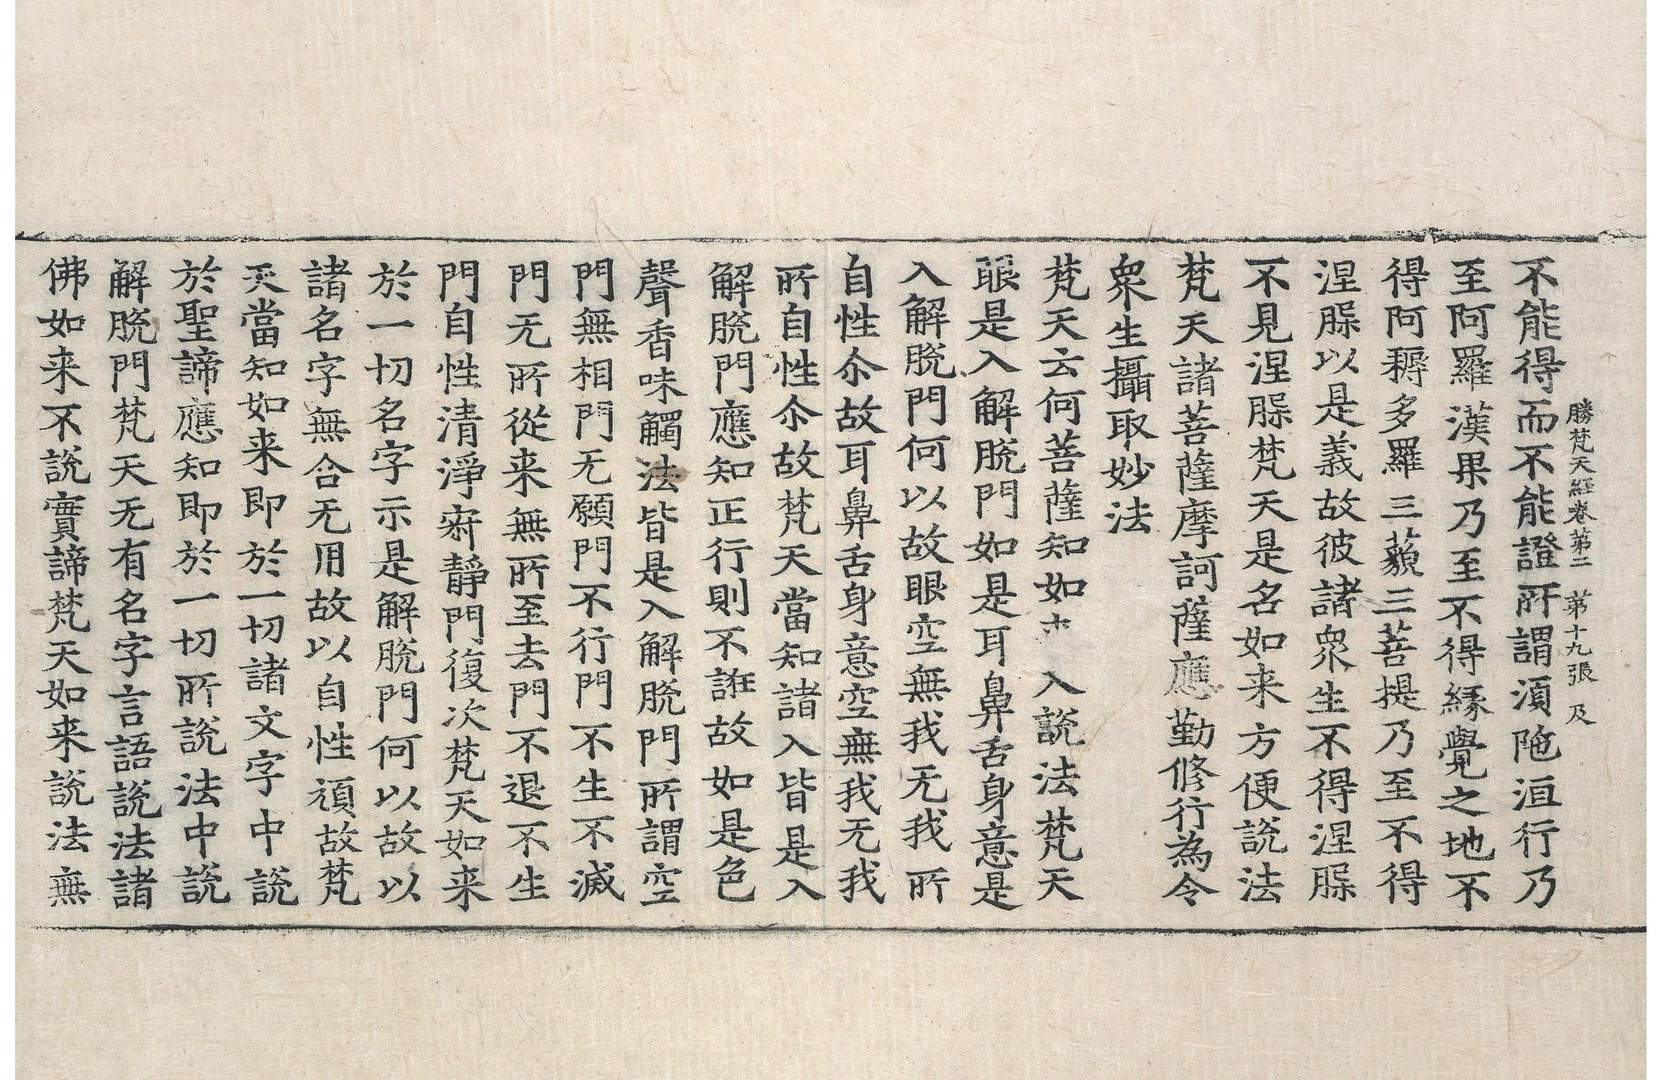 勝梵天經卷第二　第十九張　及
不能得而不能證所謂湏陁洹行乃
至阿羅漢果乃至不得縁覺之地不
得阿耨多羅三藐三菩提乃至不得
涅槃以是義故彼諸衆生不得涅槃
不見涅槃梵天是名如来方便說法
梵天諸菩薩摩訶薩應勤修行為令
衆生攝取妙法
梵天云何菩薩知如 入說法梵天
眼是入解脫門如是耳鼻舌身意是
入解脫門何以故眼空無我无我所
自性尒故耳鼻舌身意空無我无我
所自性尒故梵天當知諸入皆是入
解脫門應知正行則不誑故如是色
聲香味觸法皆是入解脫門所謂空
門無相門无願門不行門不生不滅
門无所從来無所至去門不退不生
門自性清淨寂靜門復次梵天如来
於一切名字示是解脫門何以故以
諸名字無合无用故以自性頑故梵
天當知如来即於一切諸文字中說
於聖諦應知即於一切所說法中說
解脫門梵天无有名字言語說法諸
佛如来不說實諦梵天如来說法無